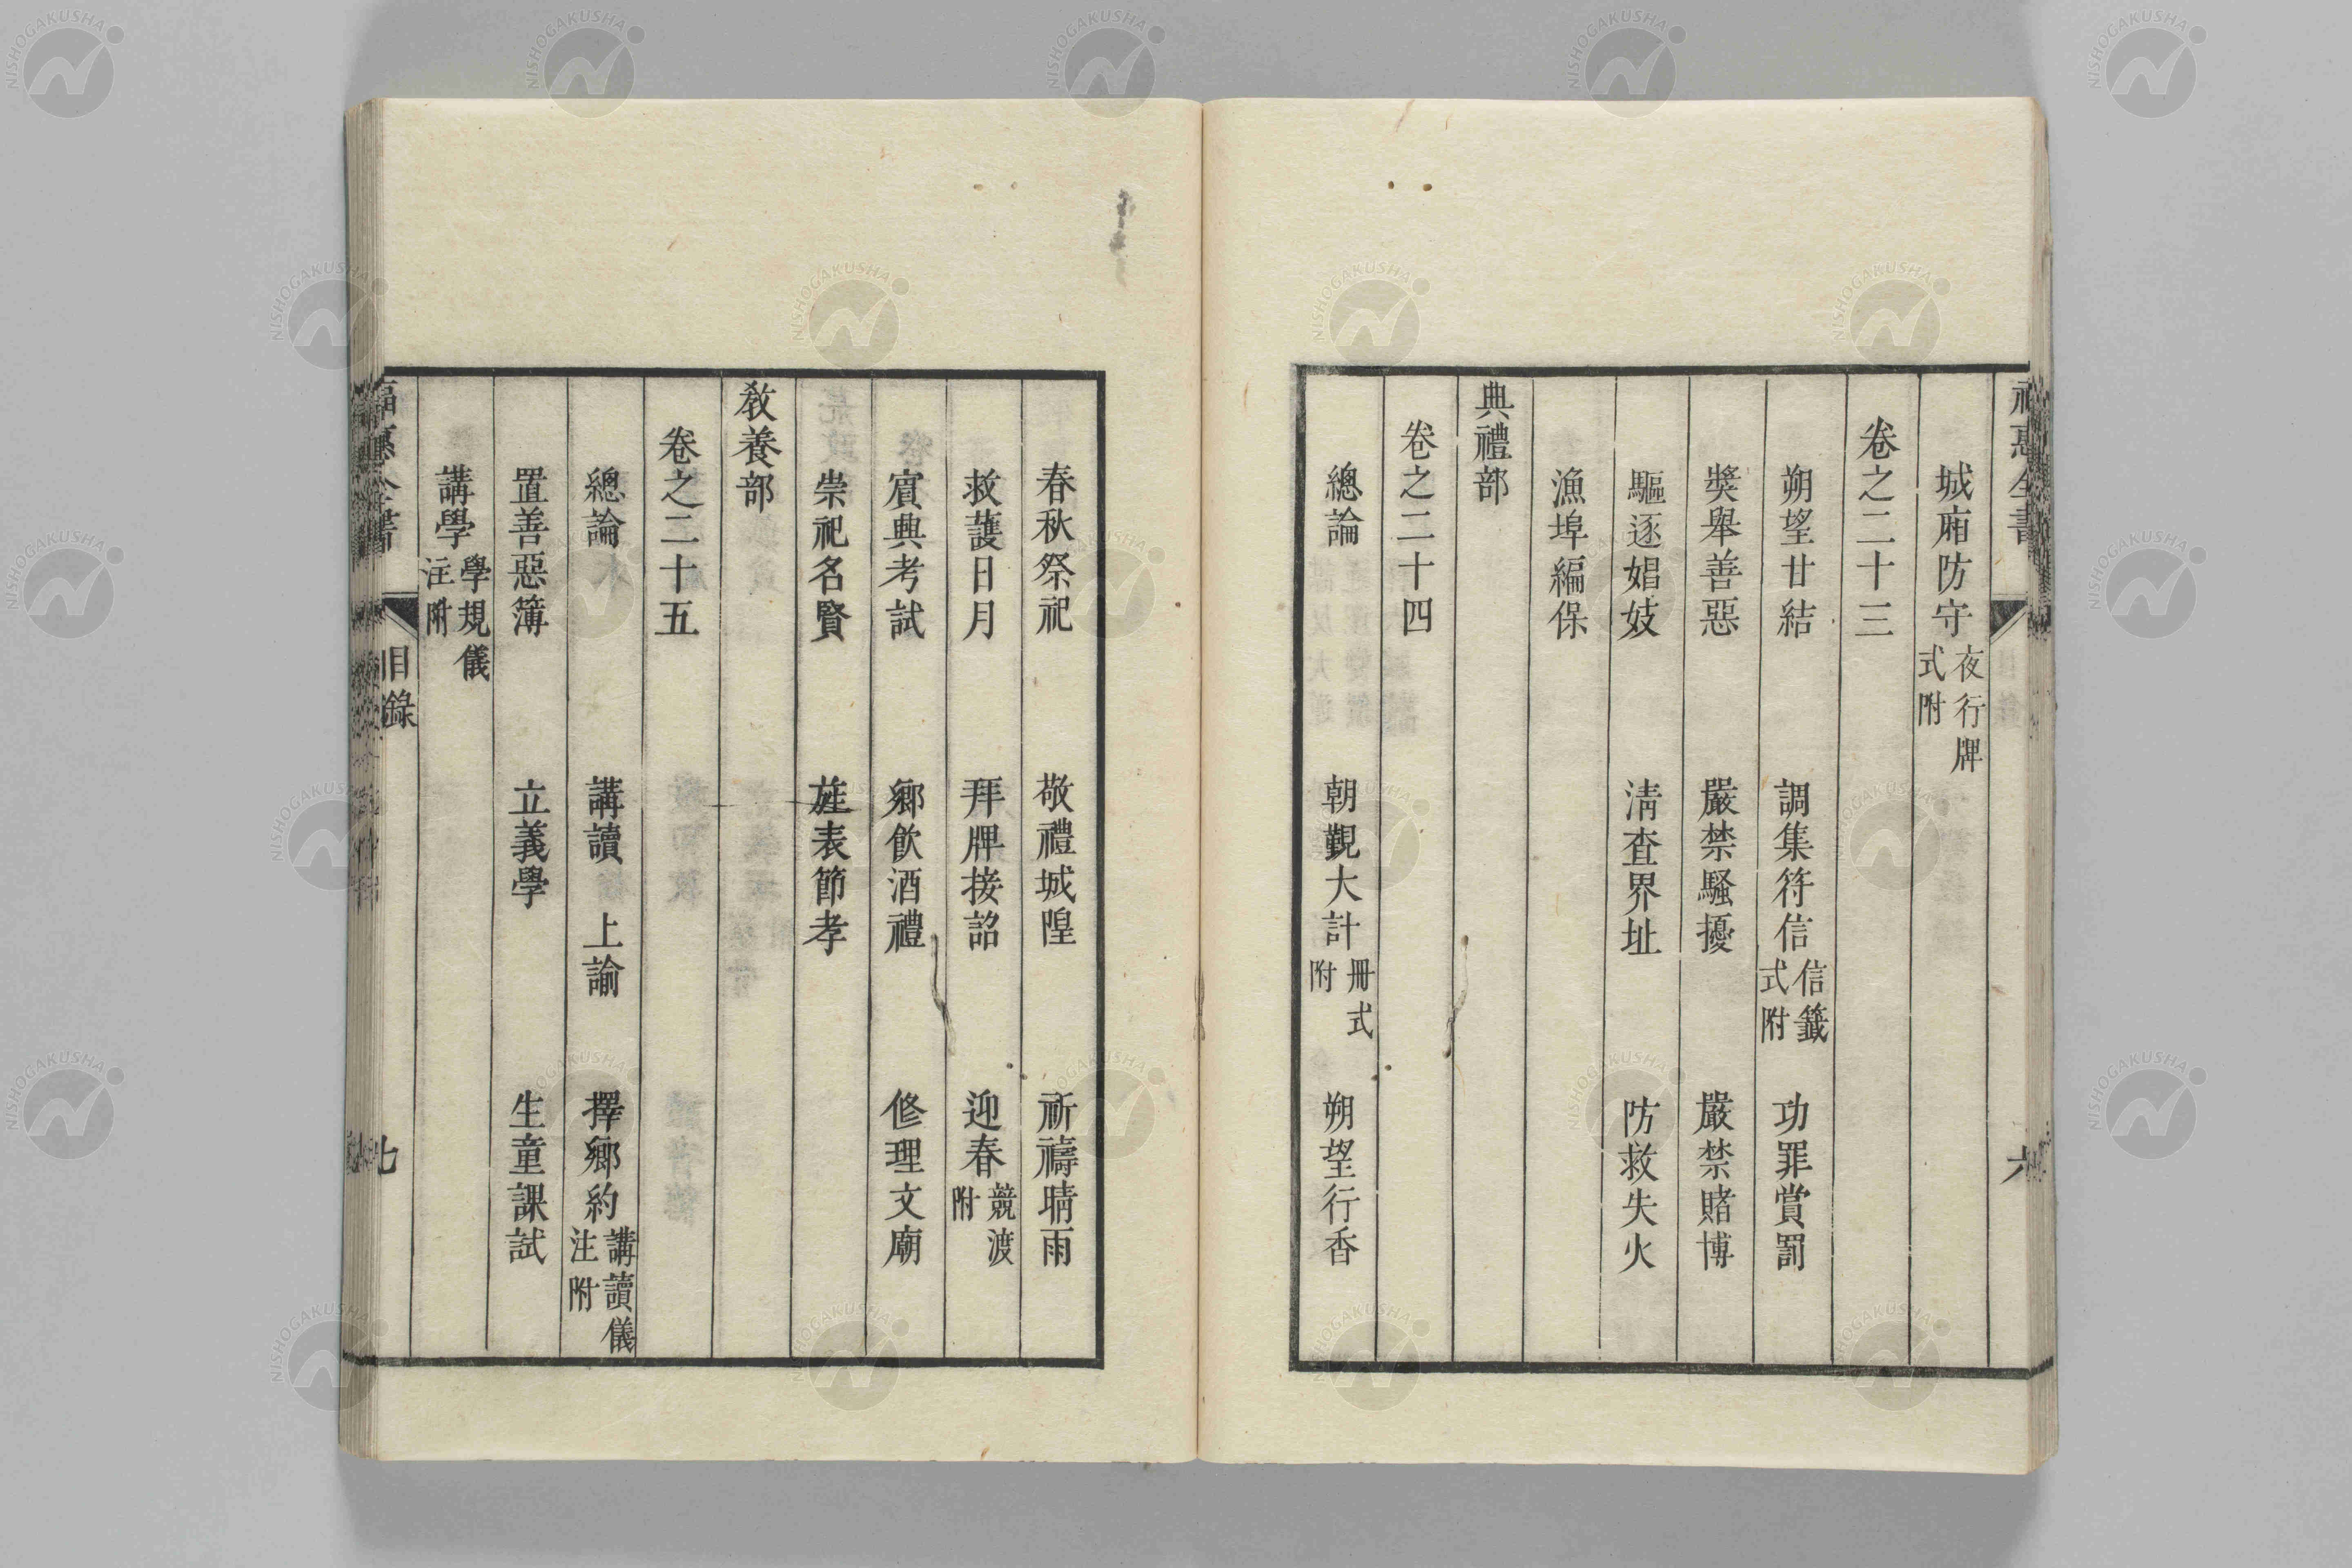 福惠全書 六
城廂防守 夜行牌式附
卷之二十三
朔望廿結 調集符信 信籤式附 功罪賞罰
奬舉善惡 嚴禁騷擾 嚴禁賭博
驅逐娼妓 淸査界址 防救失火
漁埠編保
典禮部
卷之二十四
總論 朝覲大計 冊式附 朔望行香
春秋祭祀 敬禮城隍 祈禱晴雨
救護日月 拜牌接詔 迎春 競渡附
賓興考試 鄉飮酒禮 修理文廟
崇祀名賢 旌表節孝
敎養部
卷之二十五
總論 講讀 上諭 擇鄉約 講讀儀注附
置善惡簿 立義學 生童課試
講學 學規儀注附
福惠全書 目錄 七
NISHOGAKUSHA